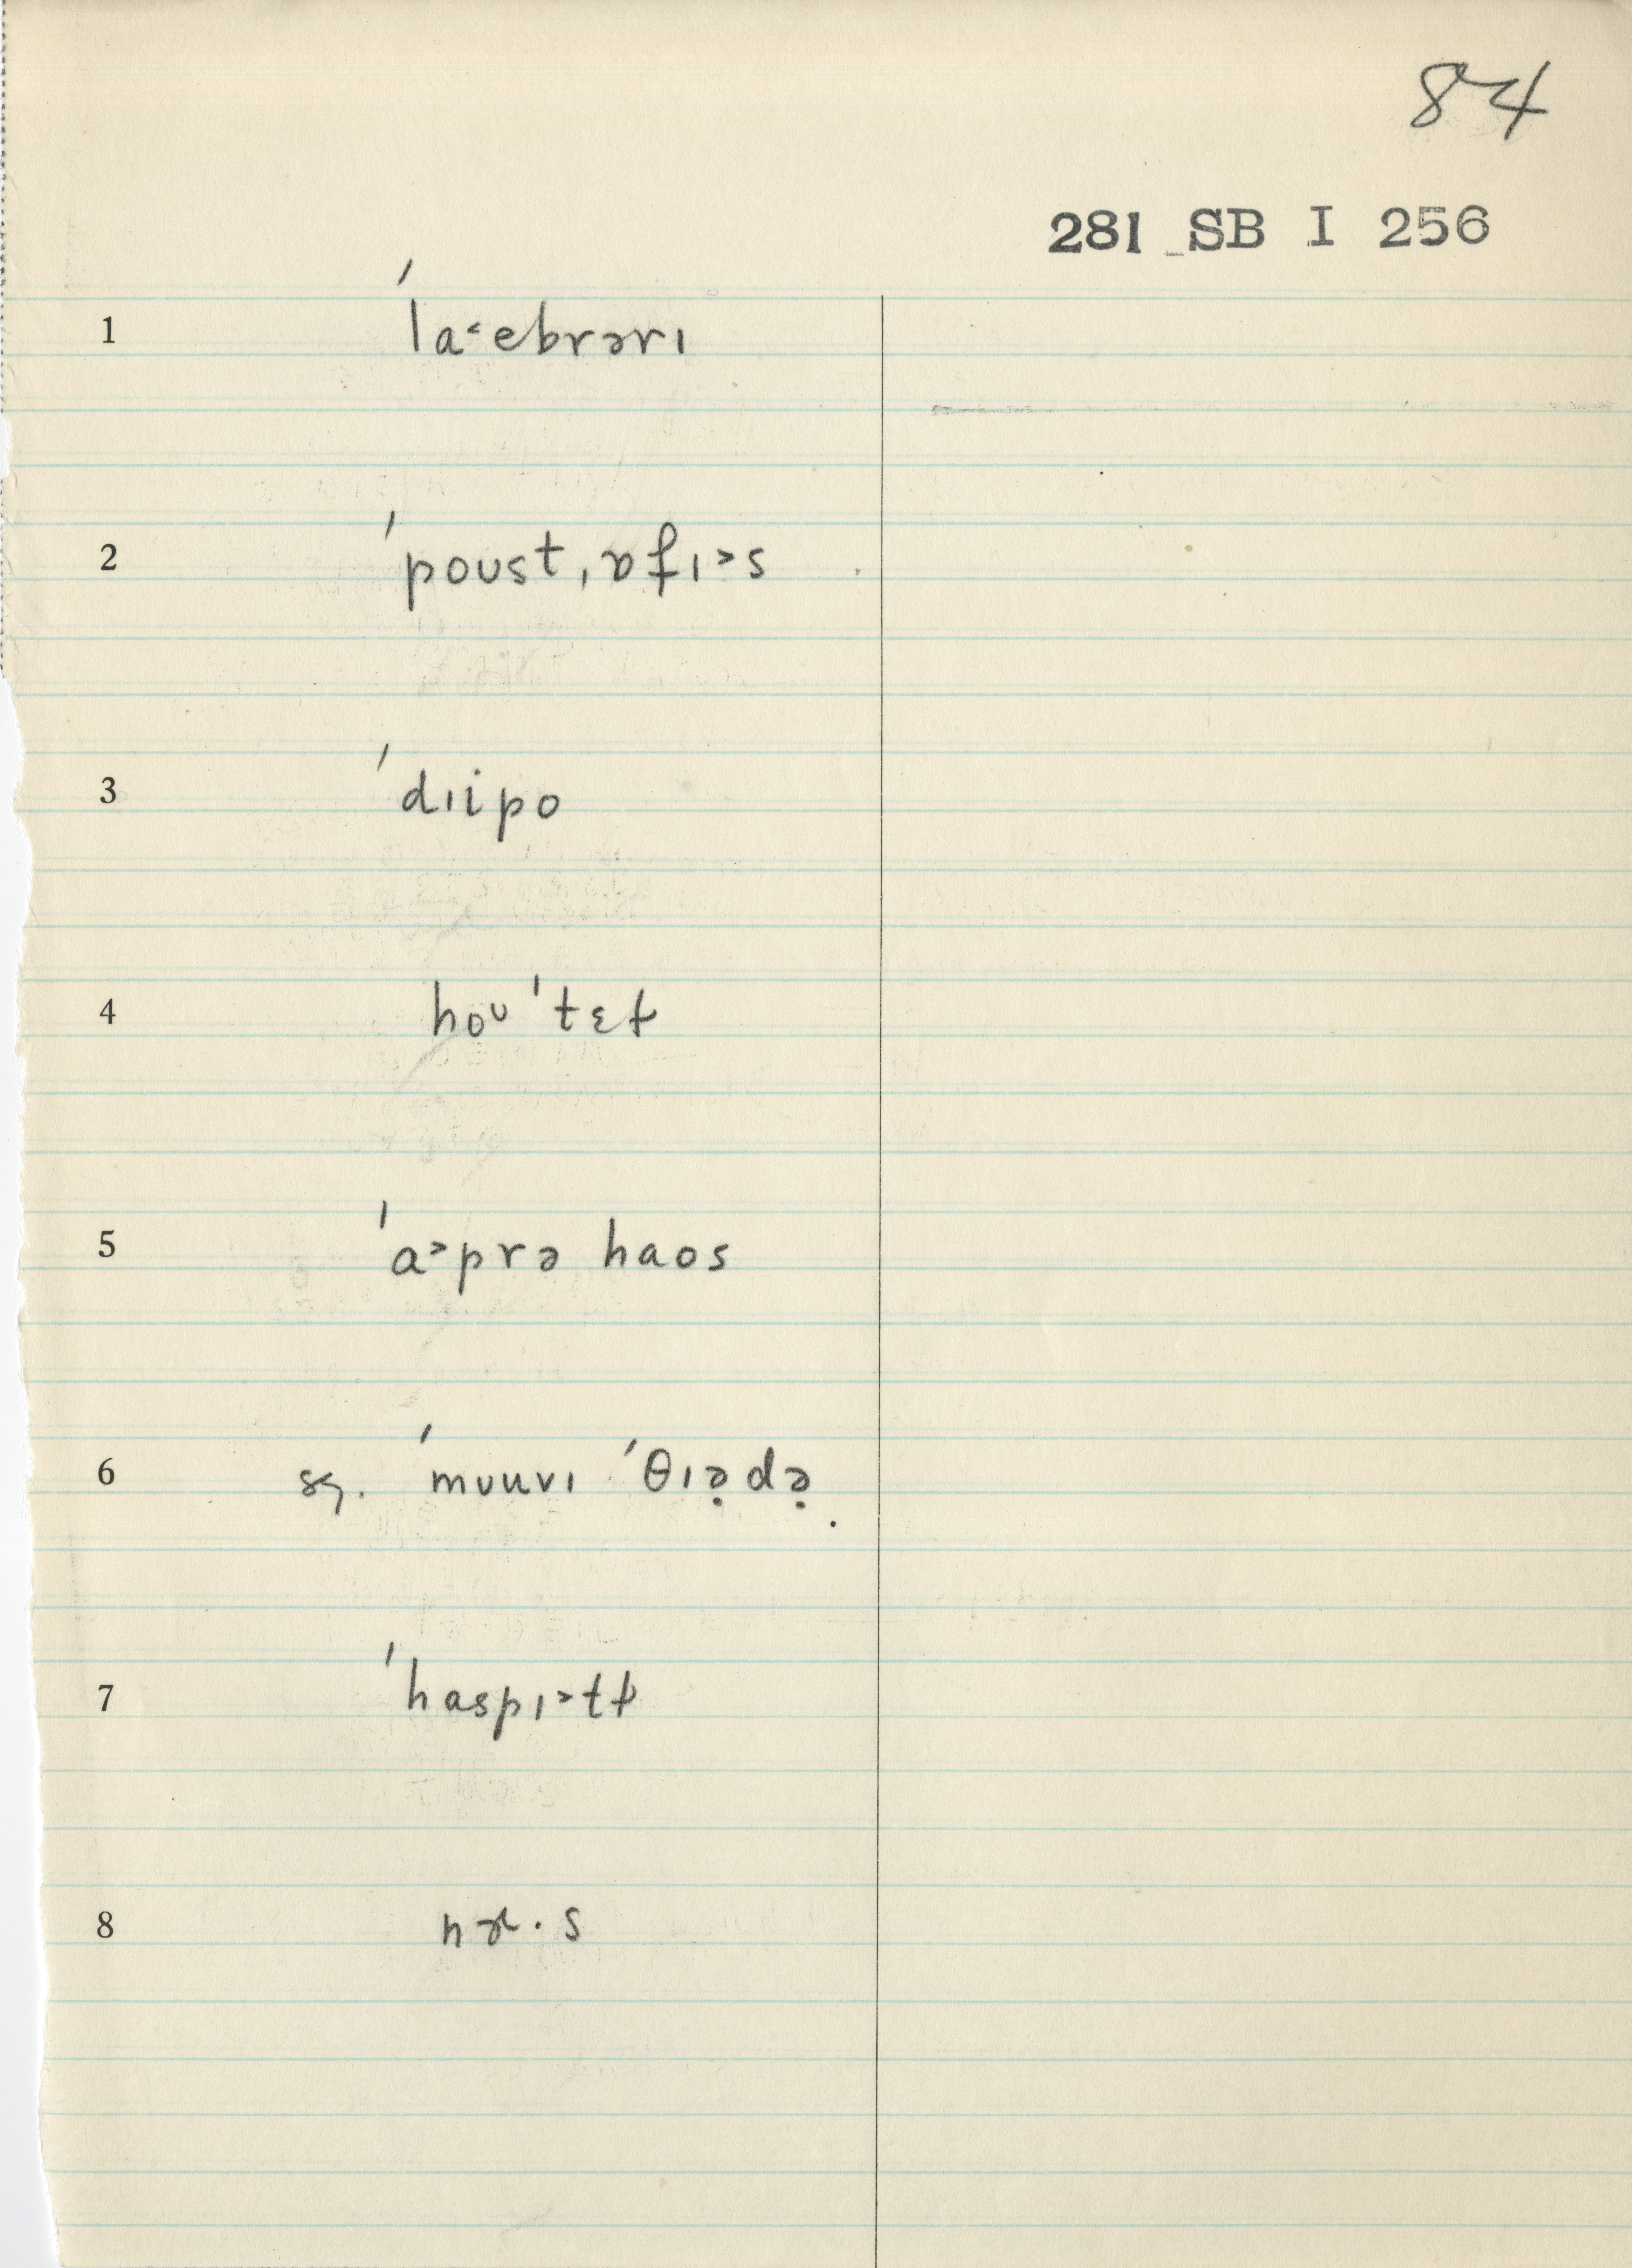 84
281 SB I 256
1 ˈla˂ebrərɪ
2 ˈpoʊst,ɒfɪ˃s
3 ˈdɪipo
4 hoʊˈtɛɫ
5 ˈa˃prə haos
6 sg. ˈmʊuvɪ ˈθɪə̣də̣
7 ˈhaspɪ˃tɫ
8 nɚ·s